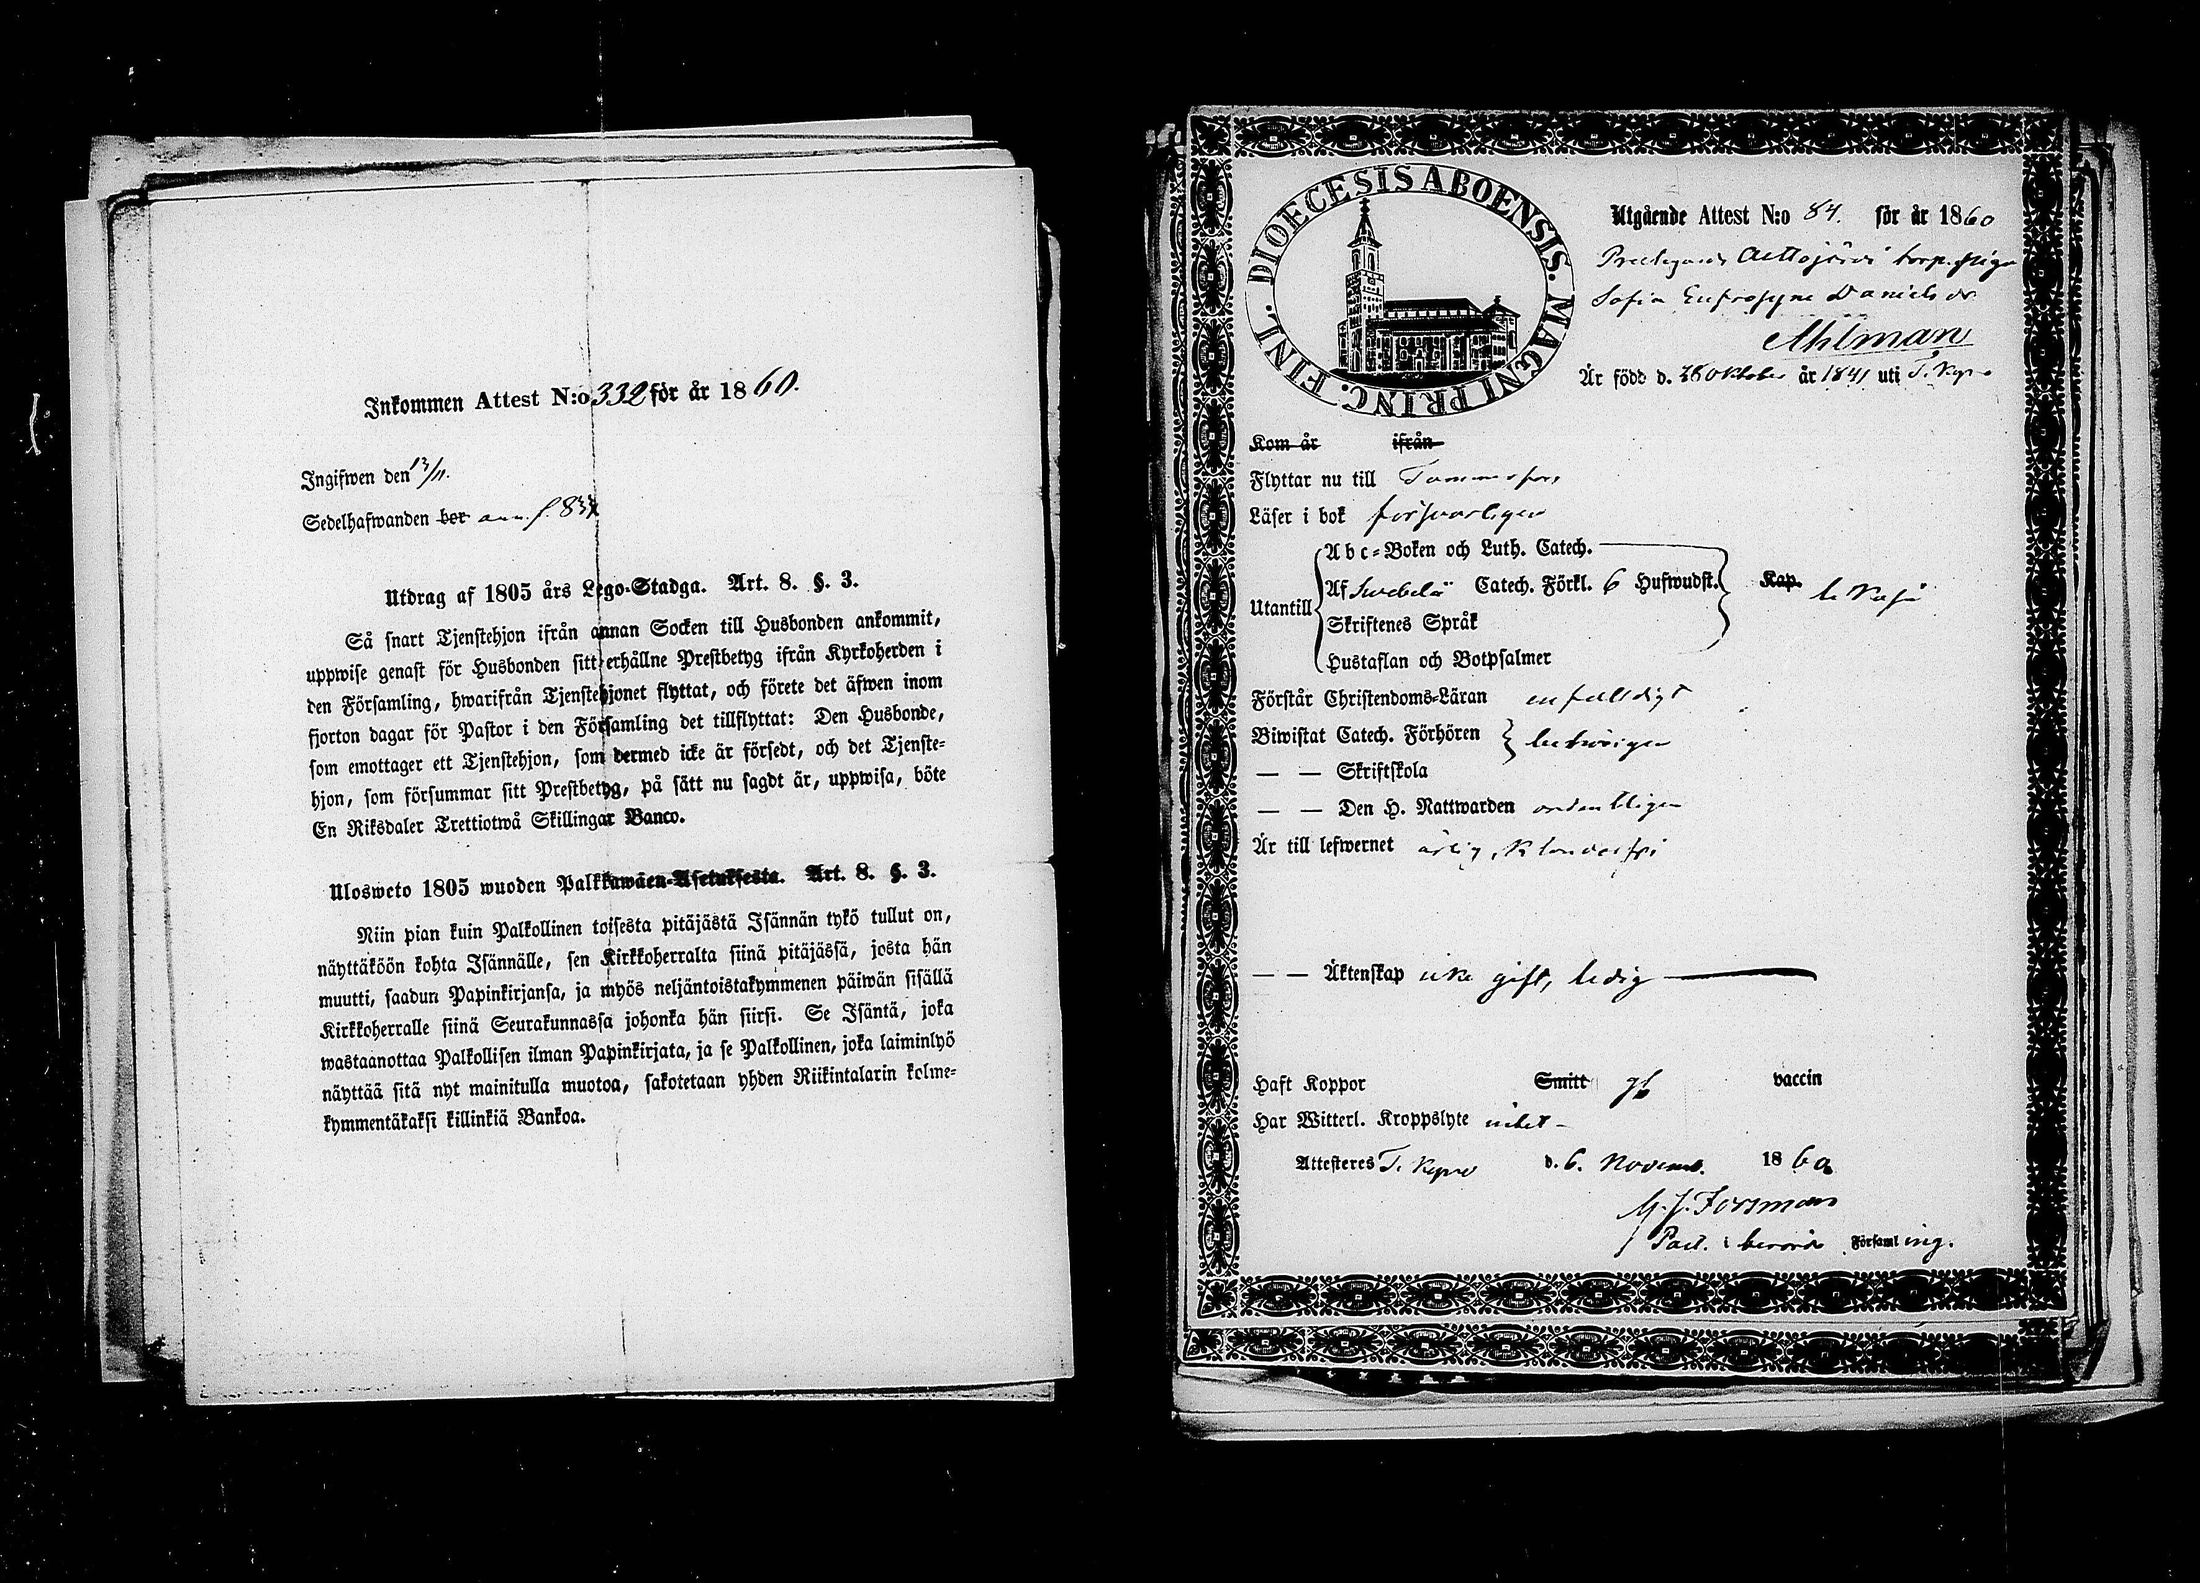 Inkommen Attest N:o 332 för år 1860.
Ingifwen den 13/11.
Sedelhafwanden bor ann. f. 837
Utdrag af 1805 års Lego-Stadga. Art. 8. §. 3.
Så snart Tjenstehjon ifrån annan Socken till Husbonden ankommit,
uppwise genast för Husbonden sitt erhållne Prestbetyg ifrån Kyrkoherden i
den Församling, hwarifrån Tjenstehjonet flyttat, och förete det äfwen inom
fjorton dagar för Pastor i den Församling det tillflyttat: Den Husbonde,
som emottager ett Tjenstehjon, som dermed icke är försedt, och det Tjenste-
hjon, som försummar sitt Prestbetyg, på sätt nu sagdt är, uppwisa, böte
En Riksdaler Trettiotwå Skillingar Banco.
Ulosweto 1805 wuoden Palkkawäen-Asetuksesta. Art. 8. §. 3.
Niin pian kuin Palkollinen toisesta pitäjästä Isännän tykö tullut on,
näyttäköön kohta Isännälle, sen Kirkkoherralta siinä pitäjässä, josta hän
muutti, saadun Papinkirjansa, ja myös neljäntoistakymmenen päiwän sisällä
Kirkkoherralle siinä Seurakunnassa johonka hän siirsi. Se Isäntä, joka
wastaanottaa Palkollisen ilman Papinkirjata, ja se Palkollinen, joka laiminlyö
näyttää sitä nyt mainitulla muotoa, sakotetaan yhden Riikintalarin kolme-
kymmentäkaksi killinkiä Bankoa.
DIOECESIS ABOENSIS. MAGNI PRINC. FINL.
Utgående Attest N:o 84. för år 1860
torp. piga
Sofia Eufrosyne Daniels dr
Ahlman
Är född d. 28 Oktober år 1841 uti T. Kyro
Kom år ifrån
Flyttar nu till Tammerfors
Läser i bok försvarligen
Abc-Boken och Luth. Catech.
Af Svebelii Catech. Förkl. 6 Hufwudst. Kap.
Utantill
Skriftenes Språk
Hustaflan och Botpsalmer
Förstår Christendoms-Läran enfalldigt
Biwistat Catech. Förhören behörigen
— — Skriftskola
— — Den H. Nattwarden ordentligen
Är till lefwernet ärlig, klanderfri
— — Äktenskap icke gift, ledig
Haft Koppor Smitt vaccin
Har Witterl. Kroppslyte intet -
Attesteres T. Kyro d. 6. Novemb. 1860
M. J. Forsman
Past. i berörde Församling.